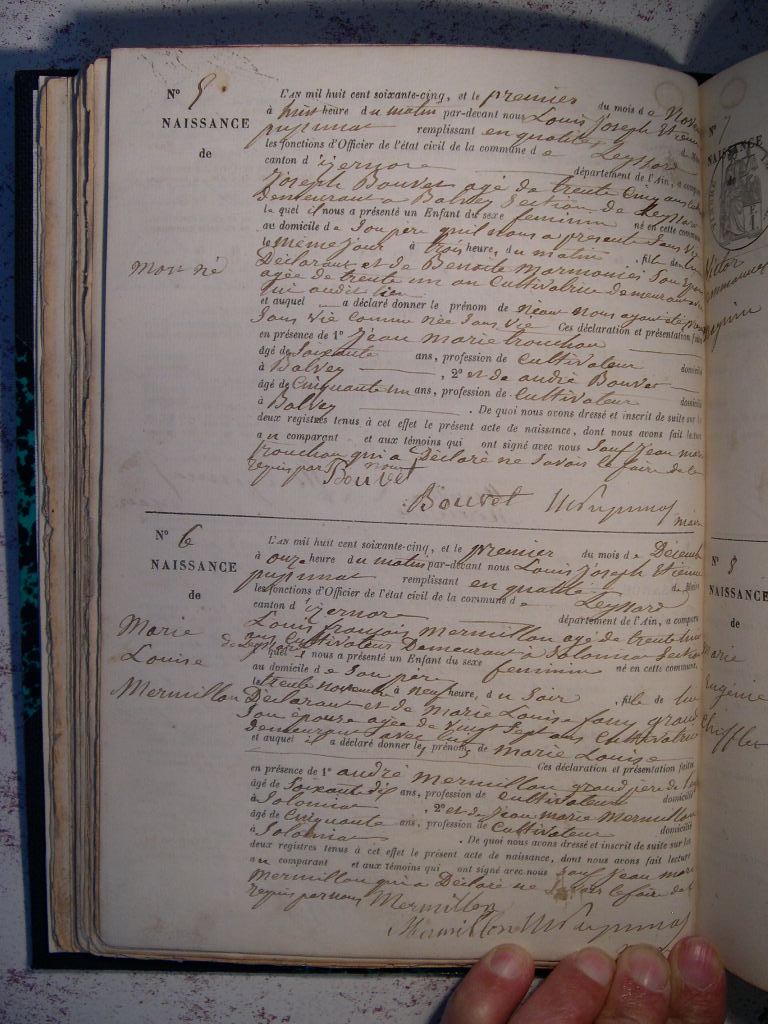 N° 5
NAISSANCE
de
mort né
L'AN mil huit cent soixante-cinq, et le premier du mois de Nove
à huit heure du matin par-devant nous Louis Joseph Etienne
pupunat remplissant en qualité de Maire
les fonctions d'Officier de l'état civil de la commune de Leyssard
canton d'izernore département de l'Ain, a comparu
Joseph Bouvet agé de trente cinq ans
Demeurant a Balvey Section de Leyssard
le quel il nous a présenté un Enfant du sexe feminin né en cette commune
au domicile de Son père qu'il nous a présenté Sans Vie
le même jour à trois heure, du matin , fille de lui
Déclarant et de Benoite Marmonier Son Epouse
agée de trente un an Cultivatrice Demeurant avec
lui audit lieu
et auquel a déclaré donner le prénom de nous ayant été présenté
Sans Vie comme née Sans Vie Ces déclaration et présentation faites
en présence de 1° Jean Marie trouchon
âgé de Soixante ans, profession de Cultivateur domicilié
à Balvey , 2° et de andré Bouvet
âgé de Cinquante un ans, profession de Cultivateur domicilié
à Balvey . De quoi nous avons dressé et inscrit de suite sur les
deux registres tenus à cet effet le présent acte de naissance, dont nous avons fait lecture
au comparant et aux témoins qui ont signé avec nous Sauf Jean marie
trouchon qui a Déclaré ne Savoir le faire de ce
requis par nous
Bouvet
Bouvet
maire
N° 6
NAISSANCE
de
Marie
Louise
Mermillon
L'AN mil huit cent soixante-cinq, et le premier du mois de Décembre
à onze heure du matin par-devant nous Louis Joseph Etienne
pupunat remplissant en qualité de Maire
les fonctions d'Officier de l'état civil de la commune de Leyssard
canton d'izernore département de l'Ain, a comparu
Louis françois Mermillon agé de trente
ans Cultivateur Demeurant a Solomiat Section
de Leyssard
quel il nous a présenté un Enfant du sexe feminin né en cette commune
au domicile de Son père
le trente novembre à neuf heure, du Soir , fille de lui
Déclarant et de Marie Louise
Son épouse agée de Vingt Sept ans Cultivatrice
demeurant avec lui
et auquel il a déclaré donner les prénoms de Marie Louise
Ces déclaration et présentation faites
en présence de 1° andré Mermillon grand père de l'enfant
âgé de Soixante dix ans, profession de Cultivateur domicilié
à Solomiat , 2° et de Jean marie Mermillon
âgé de Cinquante ans, profession de Cultivateur domicilié
à Solomiat . De quoi nous avons dressé et inscrit de suite sur les
deux registres tenus à cet effet le présent acte de naissance, dont nous avons fait lecture
au comparant et aux témoins qui ont signé avec nous Sauf Jean marie
Mermillon qui a Déclaré ne Savoir le faire de ce
requis par nous
Mermillon
Mermillon
N° 7
NAISSANCE
de
Victor
N° 8
NAISSANCE
de
Marie
Eugénie
Chifflet